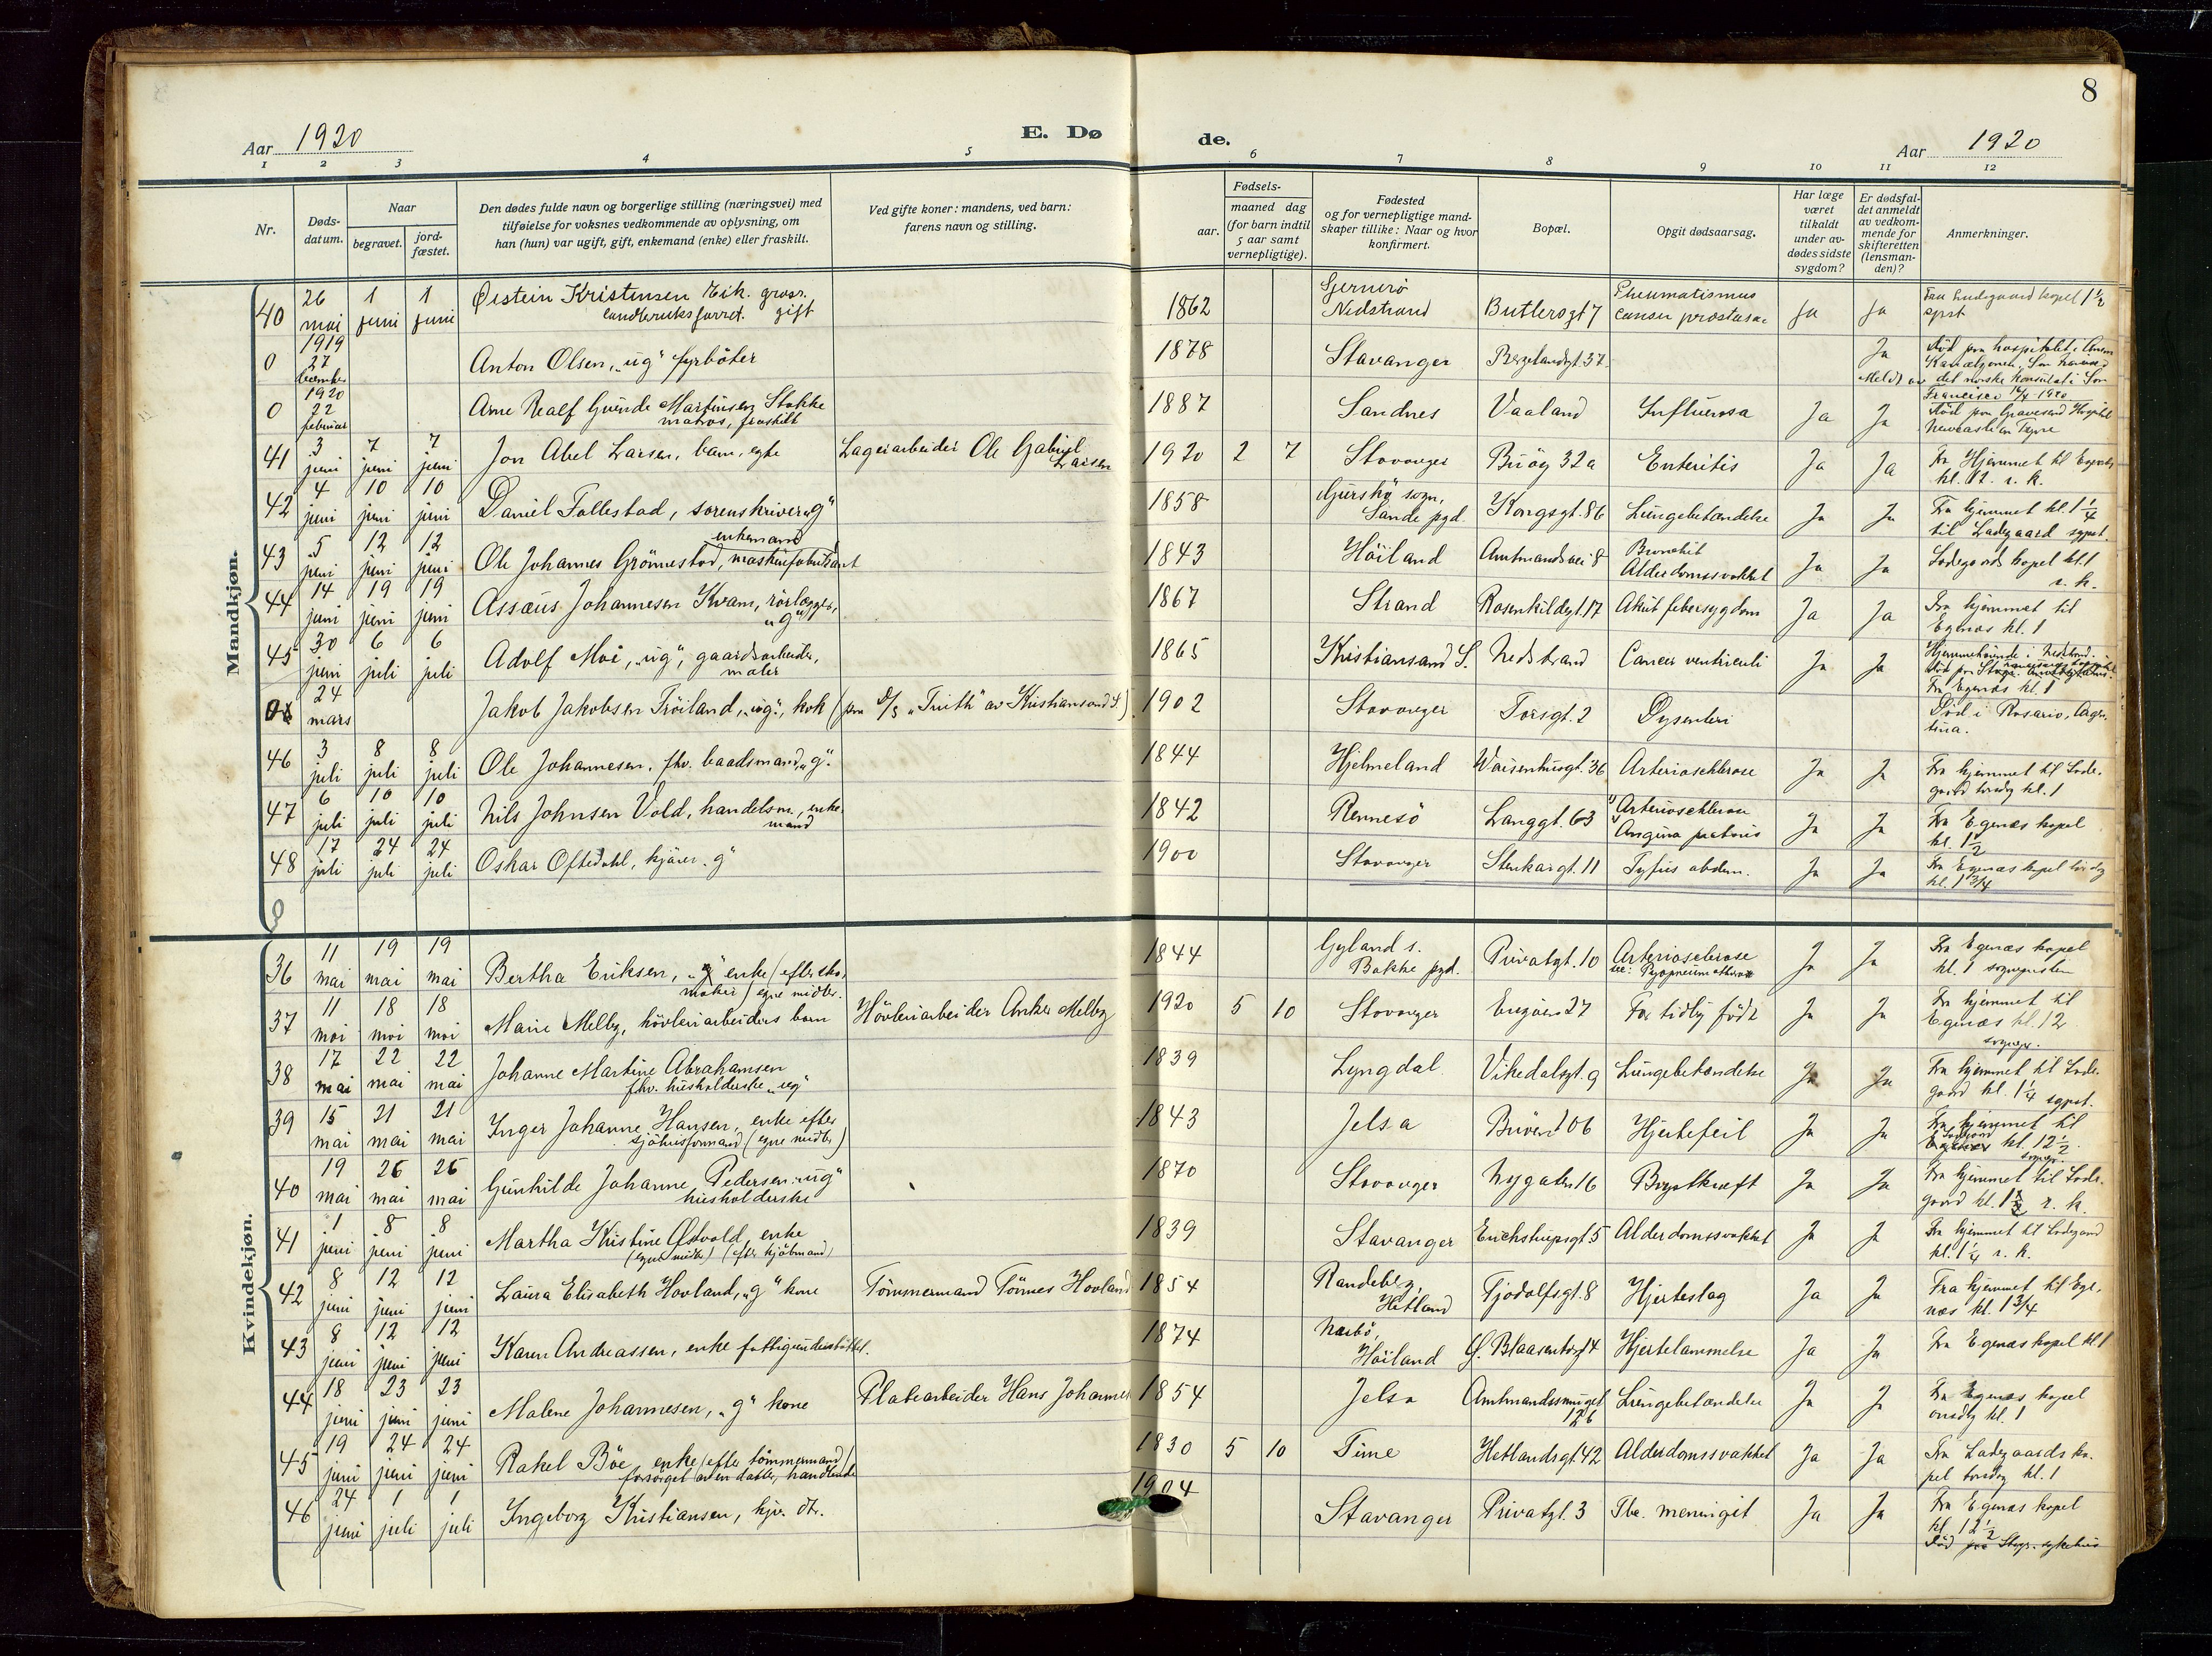 8
Aar 1920
E. Dø
de.
Aar 1920
1 2 3 4 5 6 7 8 9 10 11 12
Nr.
Døds-
datum.
Naar
begravet.
jord-
fæstet.
Den dødes fulde navn og borgerlige stilling (næringsvei) med
tilføielse for voksnes vedkommende av oplysning, om
han (hun) var ugift, gift, enkemand (enke) eller fraskilt.
Ved gifte koner: mandens, ved barn:
farens navn og stilling.
Fødsels-
aar.
maaned dag
(for barn indtil
5 aar samt
vernepligtige).
Fødested
og for vernepligtige mand-
skaper tillike: Naar og hvor
konfirmert.
Bopæl.
Opgit dødsaarsag.
Har læge
været
tilkaldt
under av-
dødes sidste
sygdom?
Er dødsfal-
det anmeldt
av vedkom-
mende for
skifteretten
(lensman-
den)?
Anmerkninger.
Mandkjøn.
40 26 mai 1 juni 1 juni Øistein Kristensen Eik. gross. gift 1862 Nedstrand Butlersgt 7 Rheumatismus cancer prostatae Ja Ja
0 1919 27 Anton Olsen, "ug" fyrböter 1878 Stavanger Bergelandsgt. 37 Ja Död paa hospitalet i
Meldt av det norske konsulat i San Francisco 1920
0 1920 22 februar Arne Realf Gunde Martinsen Stokke matros, fraskilt 1887 Sandnes Vaaland Influensa Ja Ja Död paa Gravesend Hospital Newcastle on Tyne
41 3 juni 7 juni 7 juni Jon Abel Larsen, barn, egte Lagerarbeider Ole Gabriel Larsen 1920 2 7 Stavanger Buög 32a Enteritis Ja Ja Fra Hjemmet til Egenæs kl. 12. r. k.
42 4 juni 10 juni 10 juni Daniel Tollestad, sorenskriver "g" 1858 Gurskö sogn, Sande pgd. Kongsgt. 86 Lungebetændelse Ja Ja Fra hjemmet kl. 1 1/4 til Ladegaard sgpst.
43 5 juni 12 juni 12 juni Ole Johannes Grönnestad, maskinfabrikant enkemand 1843 Höiland Amtmandsvei 8 Bronchit Alderdomssvakhet Ja Ja Ladegaards kapel kl. 1 r. k.
44 14 juni 19 juni 19 juni Assæus Johannesen Kvam, rörlægger, "g" 1867 Strand Rosenkildegt. 17 Akut febersygdom Ja Ja Fra hjemmet til Egenæs kl. 1
45 30 juni 6 juli 6 juli Adolf Moi, "ug", gaardsarbeider, maler 1865 Kristiansand S. Nedstrand Cancer ventriculi Ja Ja Hjemmehörende i Nedstrand. Fra Egenæs kl. 1
0 24 mars Jakob Jakobsen Tröiland, "ug", kok (paa d/s "Truth" av Kristiansand S.) 1902 Stavanger Torsgt. 2 Dysenteri Död i Rosario, Argentina.
46 3 juli 8 juli 8 juli Ole Johannesen, fhv. baadsmand "g". 1844 Hjelmeland Waisenhusgt. 36 Arteriosclerose Ja Ja Fra hjemmet til Ladegaard torsdag kl. 1
47 6 juli 10 juli 10 juli Nils Johnsen Vold, handelsm., enkemand 1842 Rennesö Langgt. 63 Arteriosclerose Angina pectoris Ja Ja Fra Egenæs kapel kl. 1 1/2
48 17 juli 24 juli 24 juli Oskar Oftedahl, kjörer "g" 1900 Stavanger Stenkargt. 11 Tyfus abdom. Ja Ja Fra Egenæs kapel lördag kl. 1 3/4
Kvindekjøn.
36 11 mai 19 mai 19 mai Bertha Eriksen, enke (efter skomaker) egne midler. 1844 Gyland s. Bakke pgd. Privatgt. 10 Arteriosclerose Ja Ja Fra Egenæs kapel kl. 1 sogneprsten
37 11 mai 18 mai 18 mai Marie Melby, hövleriarbeiders barn Hövleriarbeider Anker Melby 1920 5 10 Stavanger Engveien 27 For tidlig födt Ja Ja Fra hjemmet til Egenæs kl. 12 sognepr.
38 17 mai 22 mai 22 mai Johanne Martine Abrahamsen fhv. husholderske "ug" 1839 Lyngdal Vikedalsgt. 9 Lungebetændelse Ja Ja Fra hjemmet til Ladegaard kl. 1 1/4 sgpst.
39 15 mai 21 mai 21 mai Inger Johanne Hansen, enke efter sjöhusformand (egne midler) 1843 Jelsa Bruveien 106 Hjertefeil Ja Ja Fra hjemmet til Ladegaard kl. 12 1/2 sognepr.
40 19 mai 26 mai 26 mai Gunhilde Johanne Pedersen "ug" husholderske 1870 Stavanger Nygaten 16 Brystkræft Ja Ja Fra hjemmet til Ladegaard kl. 1 1/2 r. k.
41 1 juni 8 juni 8 juni Martha Kristine Østvold, enke (egne midler) (efter kjöbmand) 1839 Stavanger Erichstrupsgt. 5 Alderdomssvakhet Ja Ja Fra hjemmet til Ladegaard kl. 1 1/4 r. k.
42 8 juni 12 juni 12 juni Laura Elisabeth Hovland, "g" kone Tömmermand Tönnes Hovland 1854 Randeberg, Hetland Tjodolfsgt. 8 Hjerteslag Ja Ja Fra hjemmet til Egenæs kl. 1 3/4
43 8 juni 12 juni 12 juni Karen Andreassen, enke fattigunderstöttet. 1874 Næsbö, Höiland Ö. Blaasenborg 4 Hjertelammelse Ja Ja Fra Egenæs kapel kl. 1
44 18 juni 23 juni 23 juni Malene Johannesen, "g" kone Platearbeider Hans Johannes 1854 Jelsa Amtmandssmuget 126 Lungebetændelse Ja Ja Fra Egenæs kapel onsdag kl. 1
45 19 juni 24 juni 24 juni Rakel Böe, enke (efter tömmermand) forsörget av en datter, handlende 1830 5 10 Time Hetlandsgt. 42 Alderdomssvakhet Ja Ja Fra Ladegaards kapel torsdag kl. 1
46 24 juni 1 juli 1 juli Ingeborg Kristiansen, hjv. dtr. 1904 Stavanger Privatgt. 3 Tbc. meningit Ja Ja Fra Egenæs kapel kl. 12 1/2 Död paa Stvgr. sykehus